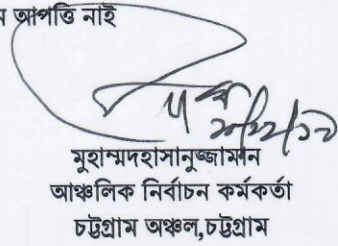 আপত্তি নাই
মুহাম্মদহাসানুজ্জামান
আঞ্চলিক নির্বাচন কর্মকর্তা
চট্টগ্রাম অঞ্চল,চট্টগ্রাম